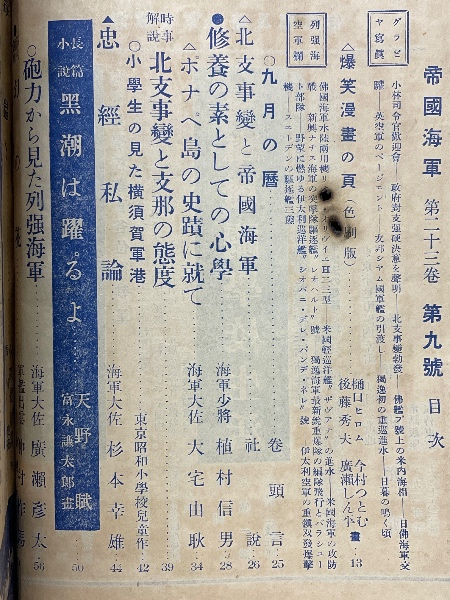 帝國海軍 第二十三卷 第九號 目次
グラビヤ寫眞
小林司令官歡迎會――政府對支强硬決意を聲明――北支事變勃發――佛艦ブ號上の米內海相――日佛海軍交
驩――英空軍のページェント――友邦シャム國軍艦の引渡し――獨逸初の重巡進水――日暮の鳴く頃
△爆笑漫畫の頁(色刷版)
樋口ヒロム 今村つとむ
後藤秀夫 廣瀨しん平 畫…13
列强海空軍欄
佛國海軍水陸兩用機
米國輕巡洋艦
の進水――米國海軍の攻防
戰――新興ナチス海軍の突擊隊驅逐艦“レオパルト”號――獨逸海軍最新銳重爆隊の編隊飛行とパラシュー
ト部隊――野望に燃ゆる伊太利巡洋艦
號――伊太利空軍の重
機――スエーデンの驅逐艦三題
○九月の曆………卷頭言…25
△北支事變と帝國海軍………社說…26
●修養の素としての心學………海軍少將 植村信男…28
△ポナペ島の史蹟に就て………海軍大佐 大宅由耿…34
時事解說 北支事變と支那の態度………39
○小學生の見た橫須賀軍港………東京昭和小學校兒童作…42
▲忠經私論………海軍大佐 杉本幸雄…44
長篇小說 黑潮は躍るよ………天野賦
富永謙太郎畫…50
○砲力から見た列强海軍………海軍大佐 廣瀨彥太…56